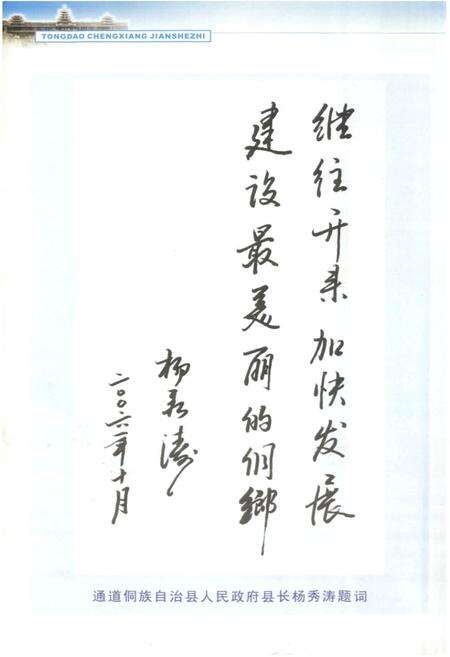 TONGDAO CHENGXIANG JIANSHEZHI
继往开来加快发展
建设最美丽的侗鄉
杨秀涛
二〇〇六年十月
通道侗族自治县人民政府县长杨秀涛题词